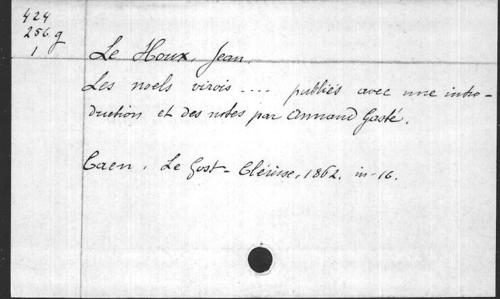 424
256 g
1
Le Houx, Jean.
Les noels virois .... publiés avec une intro-
duction et des notes par Armand Gasté.
Caen. Le Gost-Clérisse, 1862. in-16.